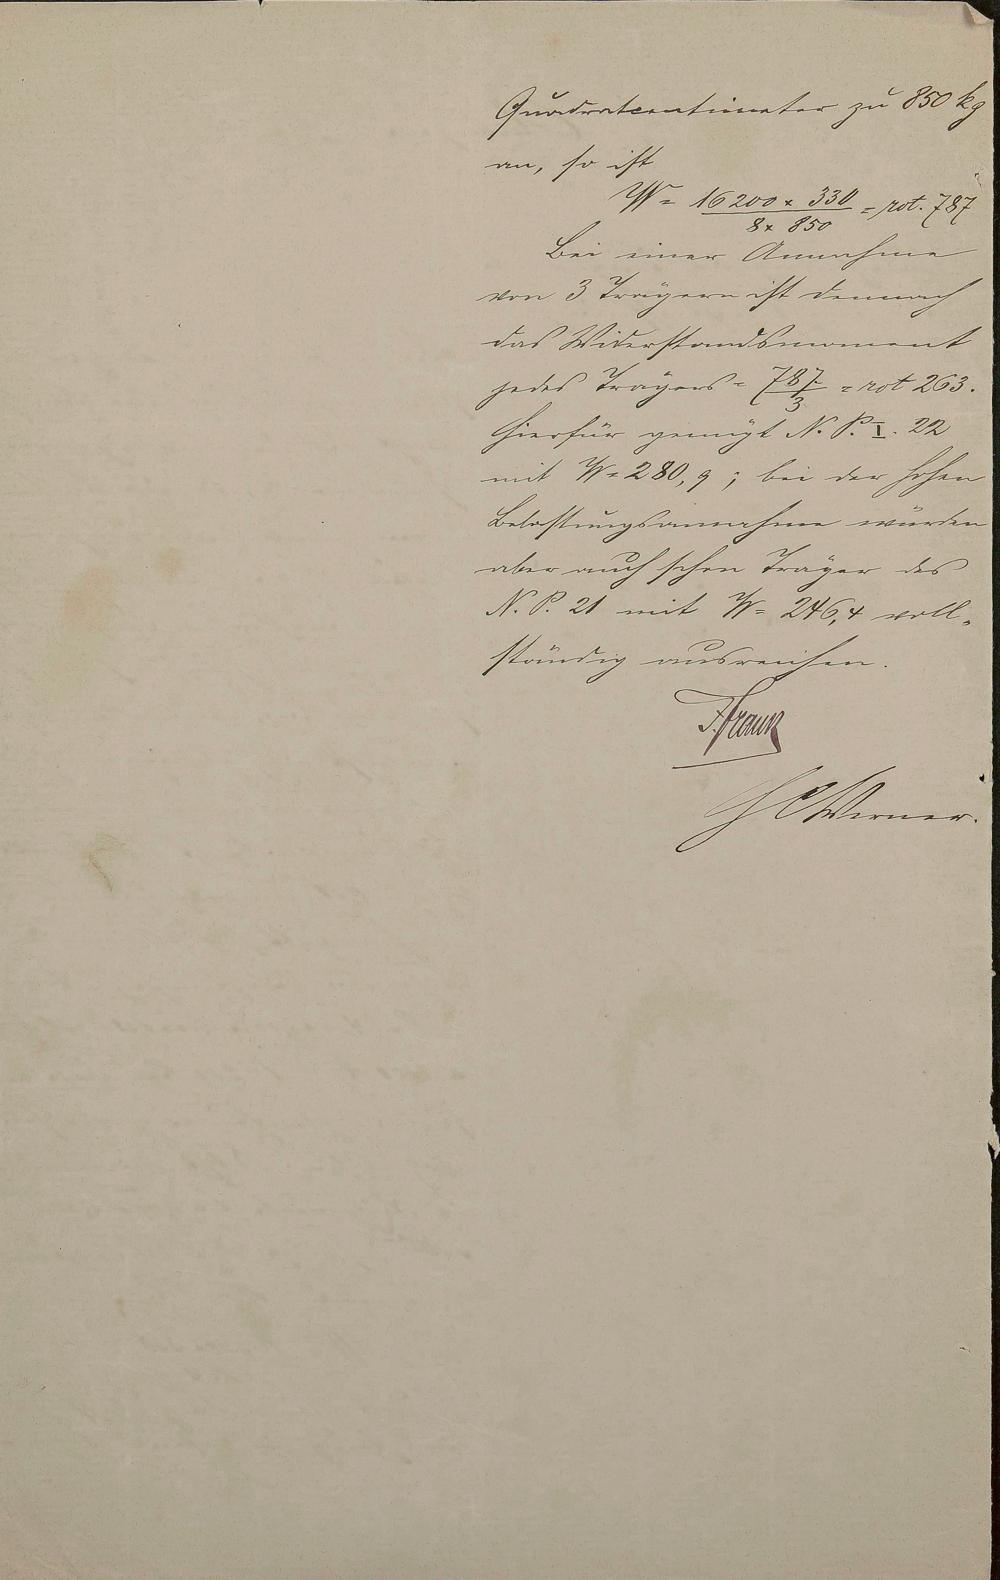 Quadratcentimeter zu 850 kg
an, so ist
W = 16200 x 330 / 8 x 850 = rot. 787
Bei einer Annahme
von 3 Trägern ist demnach
das Widerstandsmoment
jedes Trägers = 787/3 = rot 263.
Hierfür genügt N. P. I. 22
mit W = 280,9; bei der hohen
Belastungsannahme würden
aber auch schon Träger des
N. P. 21 mit W = 246,4 voll-
ständig ausreichen.
Werner.